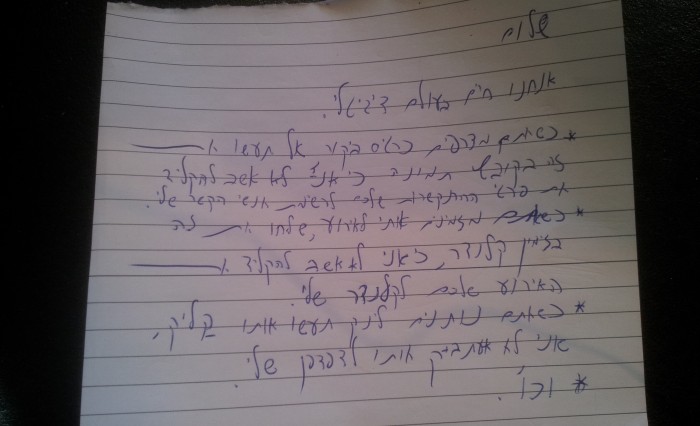 שלום
אנחנו חיים בעולם דיגיטלי.
* כשאתם מצרפים כרטיס ביקור אל תעשו
זה בקובץ תמונה כי אני לא אשב להקליד
את פרטי ההתקשרות שלכם לרשימת אנשי הקשר שלי.
* כשאתם מזמינים אותי לארוע, שלחו זה
בזימון קלנדר, כי אני לא אשב להקליד
האירוע שלכם לקלנדר שלי.
* כשאתם נותנים לינק תעשו אותו קליק,
אני לא אעתיק אותו לדפדפן שלי.
* וכו'.